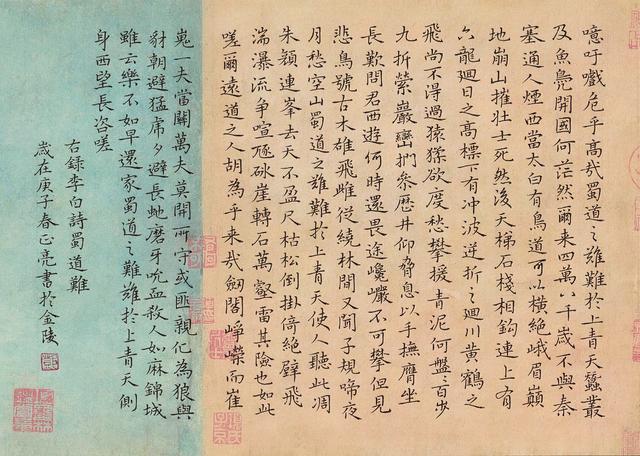 噫吁戲危乎高哉蜀道之難難於上青天蠶叢
及魚鳧開國何茫然爾来四萬八千歲不與秦
塞通人煙西當太白有鳥道可以橫絕峨眉巔
地崩山摧壯士死然後天梯石棧相鉤連上有
六龍廻日之高標下有冲波逆折之廻川黃鶴之
飛尚不得過猿猱欲度愁攀援青泥何盤盤百步
九折縈巖巒捫參歷井仰脅息以手撫膺坐
長歎問君西遊何時還畏途巉巖不可攀但見
悲鳥號古木雄飛雌從繞林間又聞子規啼夜
月愁空山蜀道之難難於上青天使人聽此凋
朱顏連峯去天不盈尺枯松倒掛倚絕壁飛
湍瀑流爭喧豗砯崖轉石萬壑雷其險也如此
嗟爾遠道之人胡為乎来哉劒閣崢嶸而崔
嵬一夫當關萬夫莫開所守或匪親化為狼與
豺朝避猛虎夕避長蛇磨牙吮血殺人如麻錦城
雖云樂不如早還家蜀道之難難於上青天側
身西望長咨嗟
右錄李白詩蜀道難
歲在庚子春正亮書於金陵